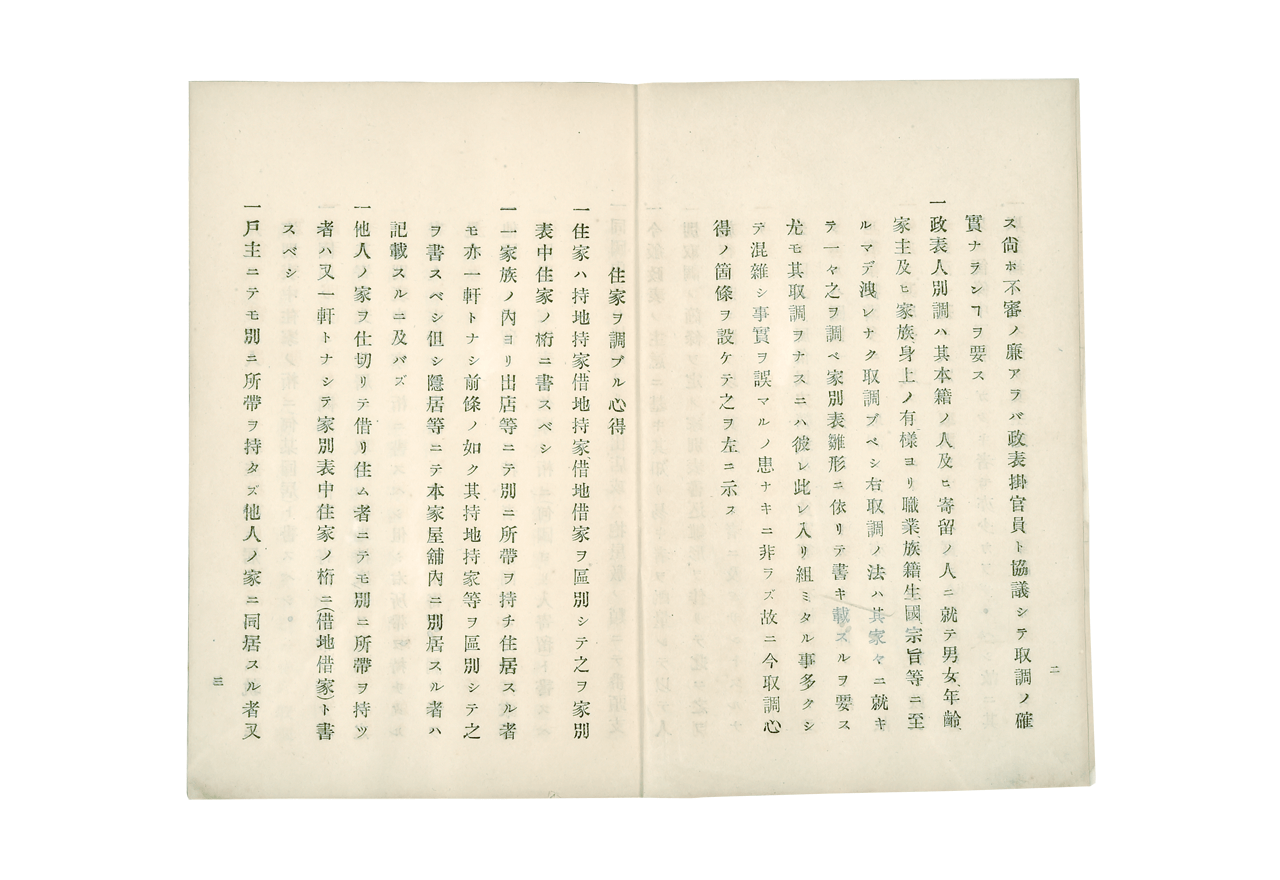 ス尙ホ不審ノ廉アラバ政表掛官員ト協議シテ取調ノ確
實ナランヿヲ要ス
一政表人別調ハ其本籍ノ人及ヒ寄留ノ人ニ就テ男女、年齡、
家主及ヒ家族、身上ノ有様ヨリ職業、族籍、生國、宗旨等ニ至
ルマデ洩レナク取調ブベシ右取調ノ法ハ其家々ニ就キ
テ一々之ヲ調ベ家別表雛形ニ依リテ書キ載スルヲ要ス
尤モ其取調ヲナスニハ彼レ此レ入リ組ミタル事多クシ
テ混雜シ事實ヲ誤マルノ患ナキニ非ラズ故ニ今取調心
得ノ箇條ヲ設ケテ之ヲ左ニ示ス
二
住家ヲ調ブル心得
一住家ハ持地持家、借地持家、借地借家ヲ區別シテ之ヲ家別
表中住家ノ桁ニ書スベシ
一一家族ノ內ヨリ出店等ニテ別ニ所帶ヲ持チ住居スル者
モ亦一軒トナシ前條ノ如ク其持地持家等ヲ區別シテ之
ヲ書スベシ但シ隱居等ニテ本家屋舖內ニ別居スル者ハ
記載スルニ及バズ
一他人ノ家ヲ仕切リテ借リ住ム者ニテモ別ニ所帶ヲ持ツ
者ハ又一軒トナシテ家別表中住家ノ桁ニ(借地借家)ト書
スベシ
一戶主ニテモ別ニ所帶ヲ持タズ他人ノ家ニ同居スル者又
三